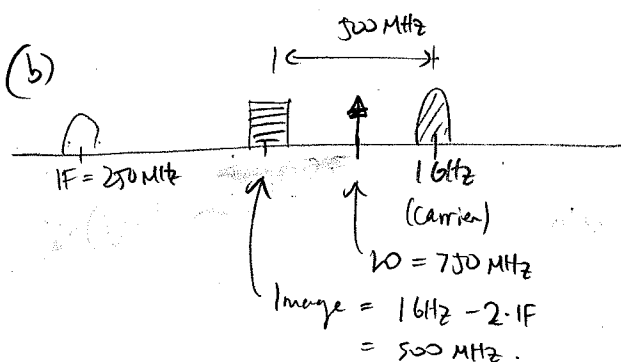 500 MHz
(b)
IF = 250 MHz
1 GHz
(Carrier)
LO = 750 MHz
Image = 1 GHz - 2·IF
= 500 MHz.